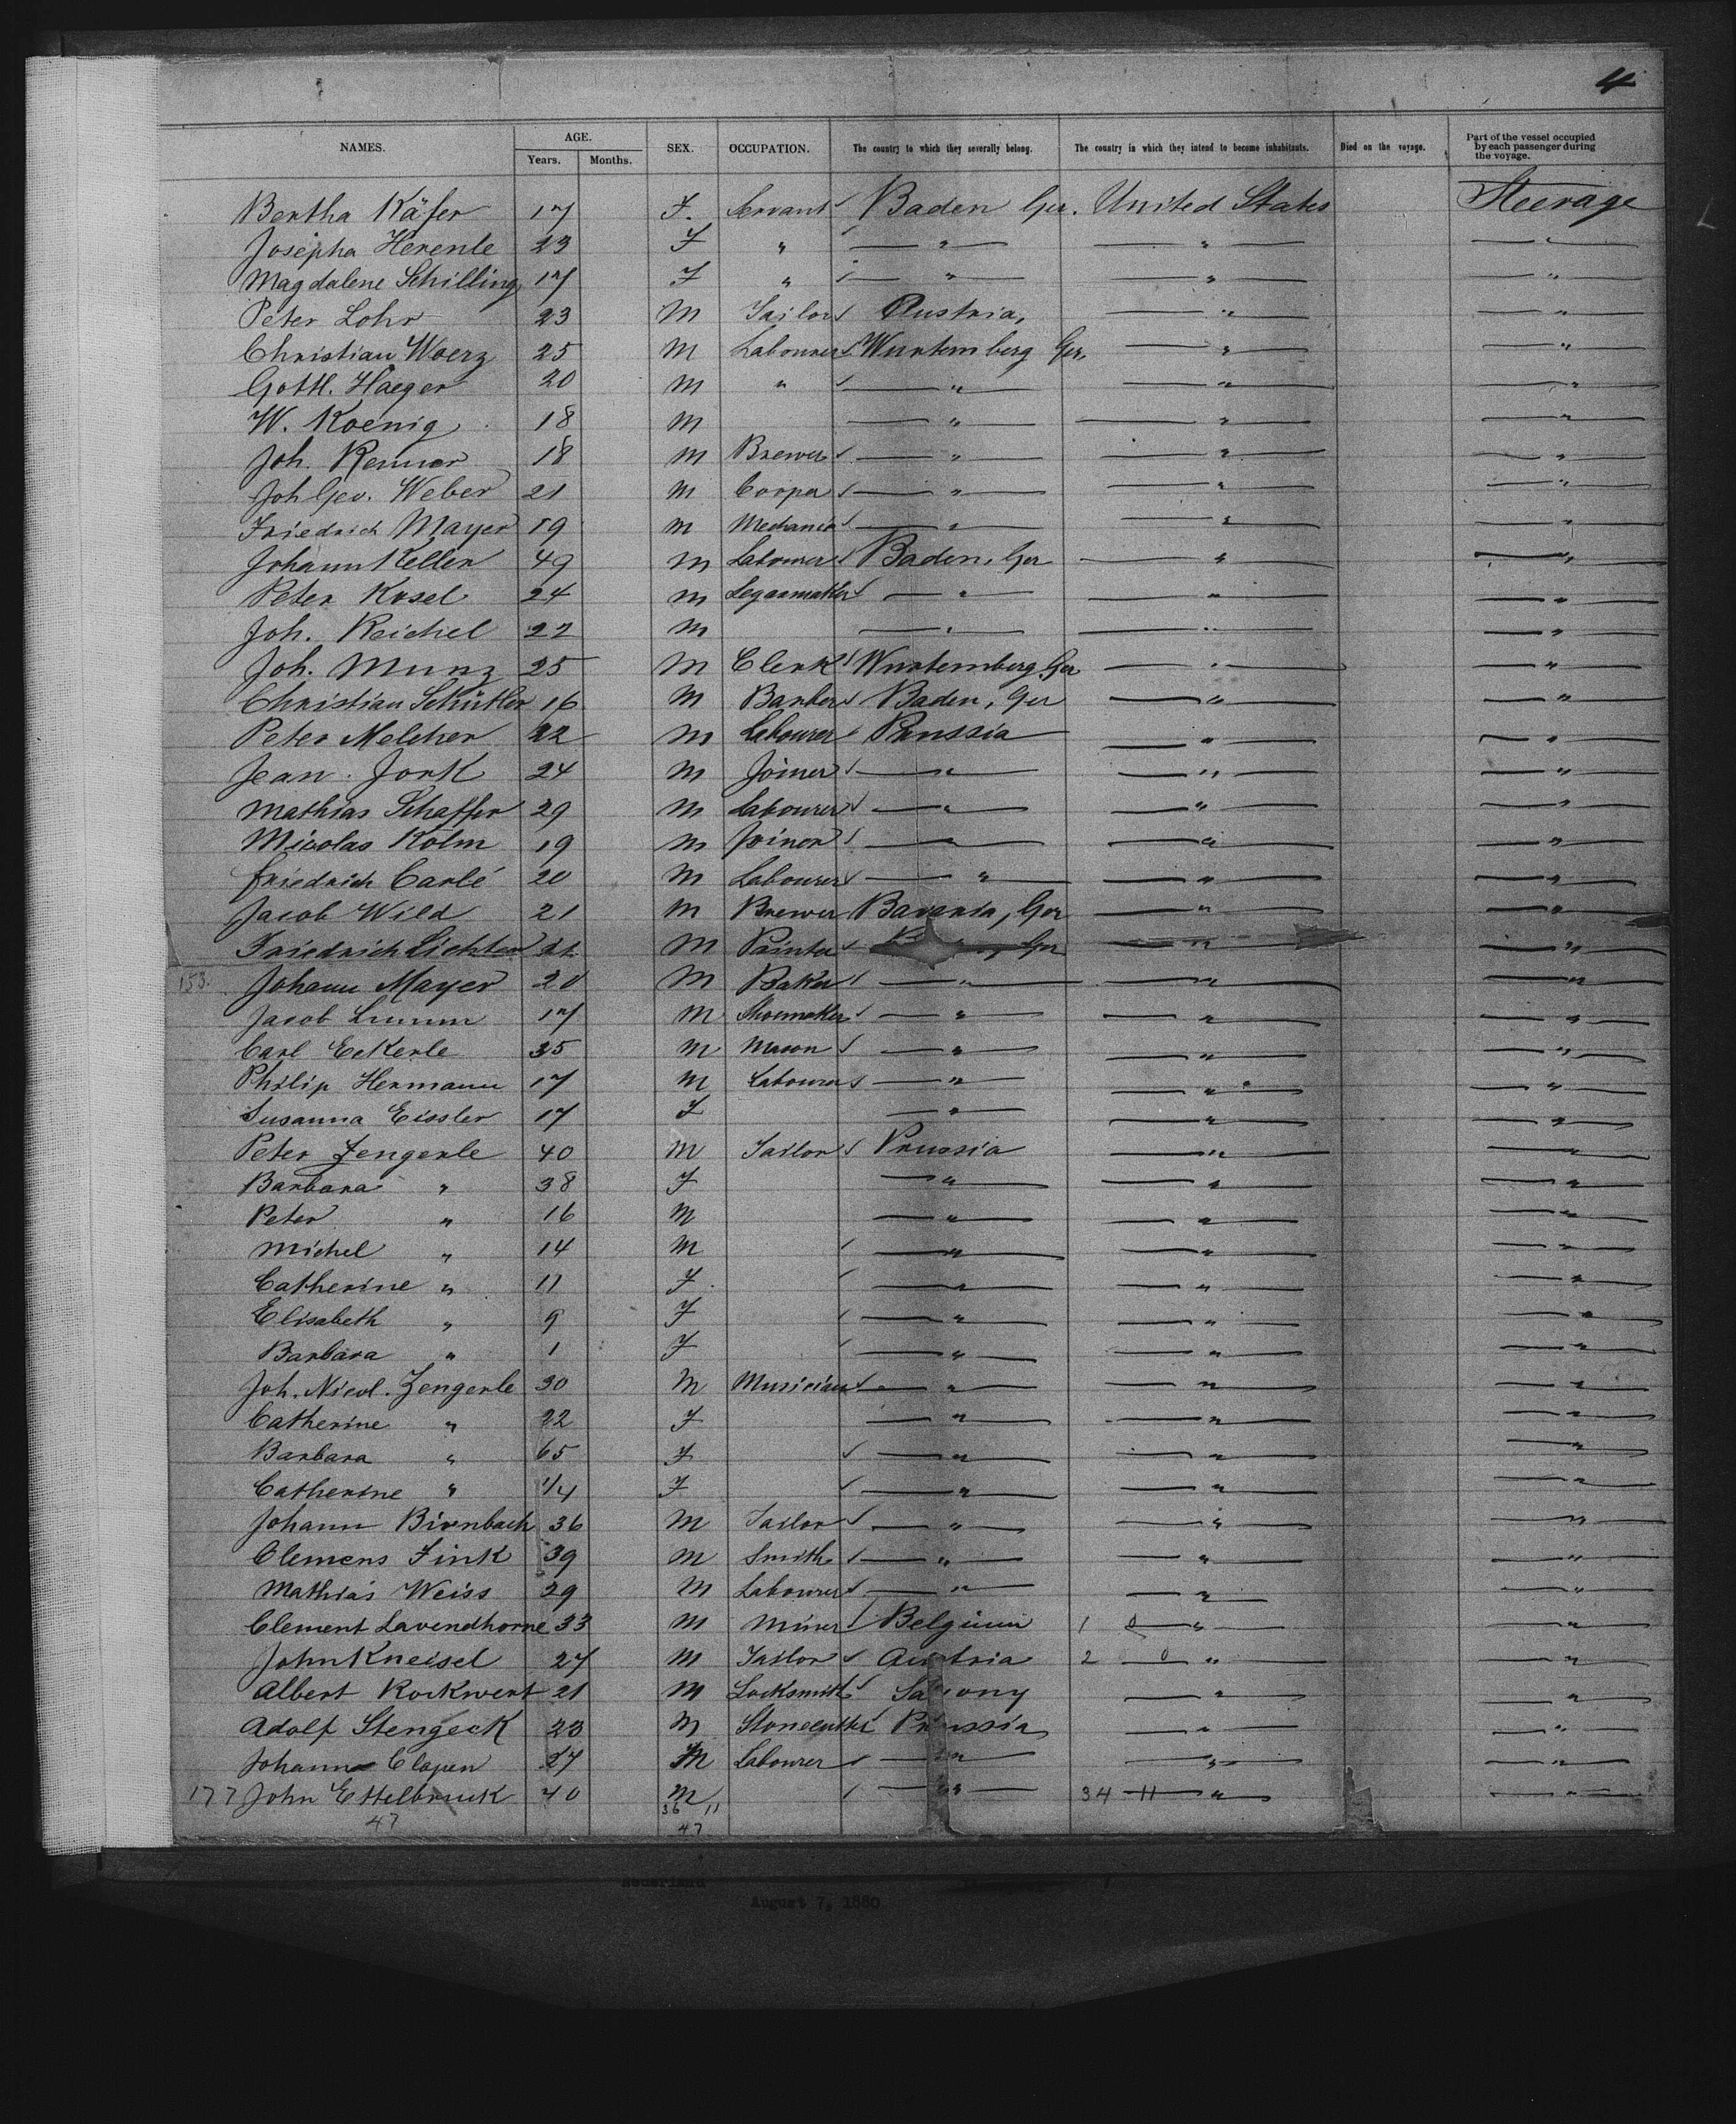 4
NAMES. AGE. Years. Months. SEX. OCCUPATION. The country to which they severally belong. The country in which they intend to become inhabitants. Died on the voyage. Part of the vessel occupied by each passenger during the voyage.
Bertha Käfer 17 F. Servant Baden Ger. United States Steerage
Josepha Herenle 23 F " " " "
Magdalene Schilling 17 F " " " "
Peter Lohr 23 M Tailor Austria, " "
Christian Woerz 25 M Labourer Wurtemberg Ger. " "
Gottl. Haeger 20 M " " " "
W. Koenig 18 M " " "
Joh. Renner 18 M Brewer " " "
Joh Geo. Weber 21 M Cooper " " "
Friedrich Mayer 19 M Mechanic " " "
Johann Keller 49 M Labourer Baden, Ger " "
Peter Kosel 24 M Segarmaker " " "
Joh. Reichel 22 M " " "
Joh. Munz 25 M Clerk Wurtemberg Ger " "
Christian Schüttler 16 M Barber Baden, Ger " "
Peter Melcher 22 M Labourer Prussia " "
Jean Jork 24 M Joiner " " "
Mathias Schaffer 29 M Labourer " " "
Nicolas Kolm 19 M Joiner " " "
Friedrich Carlé 20 M Labourer " " "
Jacob Wild 21 M Brewer Bavaria, Ger " "
Friedrich Lichten M Painter Ger " "
153. Johann Mayer 20 M Baker " " "
Jacob 17 M Shoemaker " " "
Carl Eckerle 35 M Mason " " "
Philip Hermann 17 M Labourer " " "
Susanna Eissler 17 F " " "
Peter Zengerle 40 M Tailor Prussia " "
Barbara " 38 F " " "
Peter " 16 M " " "
Michel " 14 M " " "
Catherine " 11 F " " "
Elisabeth " 9 F " " "
Barbara " 1 F " " "
Joh. Nicol. Zengerle 30 M Musician " " "
Catherine " 22 F " " "
Barbara " 65 F " " "
Catherine " 1/4 F " " "
Johann Birnbach 36 M Tailor " " "
Clemens Fink 39 M Smith " " "
Mathias Weiss 29 M Labourer " " "
Clement Lavendhorne 33 M Miner Belgium 1 0 " "
John Kneisel 27 M Tailor Austria 2 0 " "
Albert Rockwert 21 M Locksmith Saxony " "
Adolf Stengeck 23 M Stonecutter Prussia " "
Johann Clapen 27 M Labourer " " "
177 John Ettelbruck 40 M " 34 11 " "
47 36 11
47
Nederland
August 7, 1880